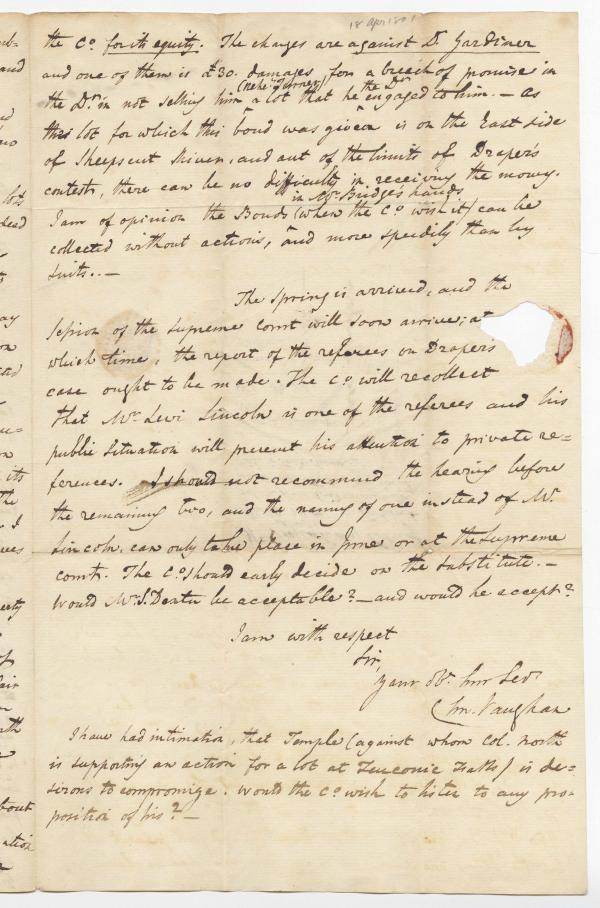 18 Apr 1801
the Co. for its equity. The charges are against Dr. Gardiner
and one of them is £30. damages, for a breach of promise in
(Nehe. Turner) the Dr.
the Dr. in not selling him a lot that he engaged to him. — As
this lot for which this bond was given is on the East side
of Sheepscut River, and out of the limits of Draper's
contests, there can be no difficulty in receiving the money.
in Mr. Bridge's hands
I am of opinion the Bonds (when the Co. wish it) can be
collected without actions, and more speedily than by
suits. . —
The spring is arrived, and the
session of the supreme court will soon arrive; at
which time, the report of the referees on Draper's
case ought to be made. The Co. will recollect
that Mr. Levi Lincoln is one of the referees and his
public situation will prevent his attention to private re=
ferences. I should not recommend the hearing before
the remaining two, and the naming of one instead of Mr.
Lincoln, can only take place in June or at the Supreme
court. The Co. should early decide on the substitute. —
Would Mr. S. Dexter be acceptable? — and would he accept?
I am with respect
Sir,
Your Ob. hm Ser
Chs. Vaughan
I have had intimation, that Temple (against whom Col. North
is supporting an action for a lot at Teuconic Falls) is de=
sirous to compromize. Would the Co. wish to listen to any pro=
position of his? —